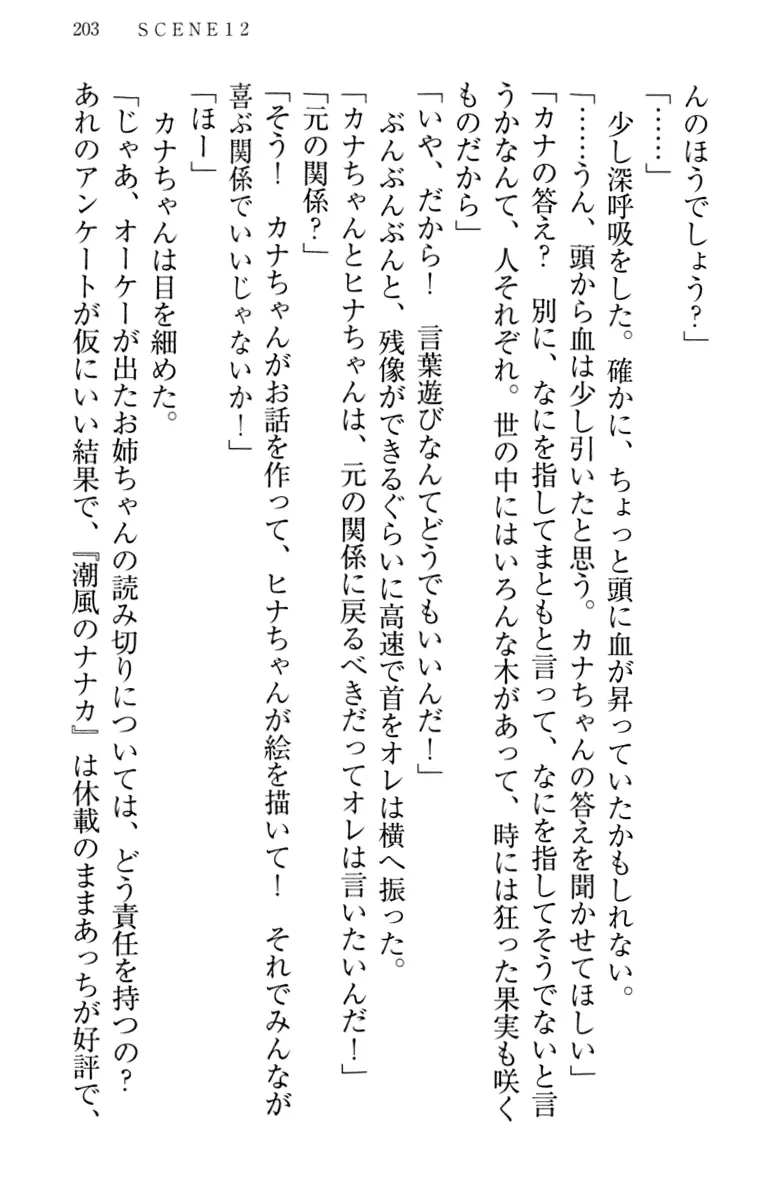 203　SCENE12
んのほうでしょう？」
「……」
　少し深呼吸をした。確かに、ちょっと頭に血が昇っていたかもしれない。
「……うん、頭から血は少し引いたと思う。カナちゃんの答えを聞かせてほしい」
「カナの答え？　別に、なにを指してまともと言って、なにを指してそうでないと言
うかなんて、人それぞれ。世の中にはいろんな木があって、時には狂った果実も咲く
ものだから」
「いや、だから！　言葉遊びなんてどうでもいいんだ！」
　ぶんぶんぶんと、残像ができるぐらいに高速で首をオレは横へ振った。
「カナちゃんとヒナちゃんは、元の関係に戻るべきだってオレは言いたいんだ！」
「元の関係？」
「そう！　カナちゃんがお話を作って、ヒナちゃんが絵を描いて！　それでみんなが
喜ぶ関係でいいじゃないか！」
「ほー」
　カナちゃんは目を細めた。
「じゃあ、オーケーが出たお姉ちゃんの読み切りについては、どう責任を持つの？
あれのアンケートが仮にいい結果で、『潮風のナナカ』は休載のままあっちが好評で、